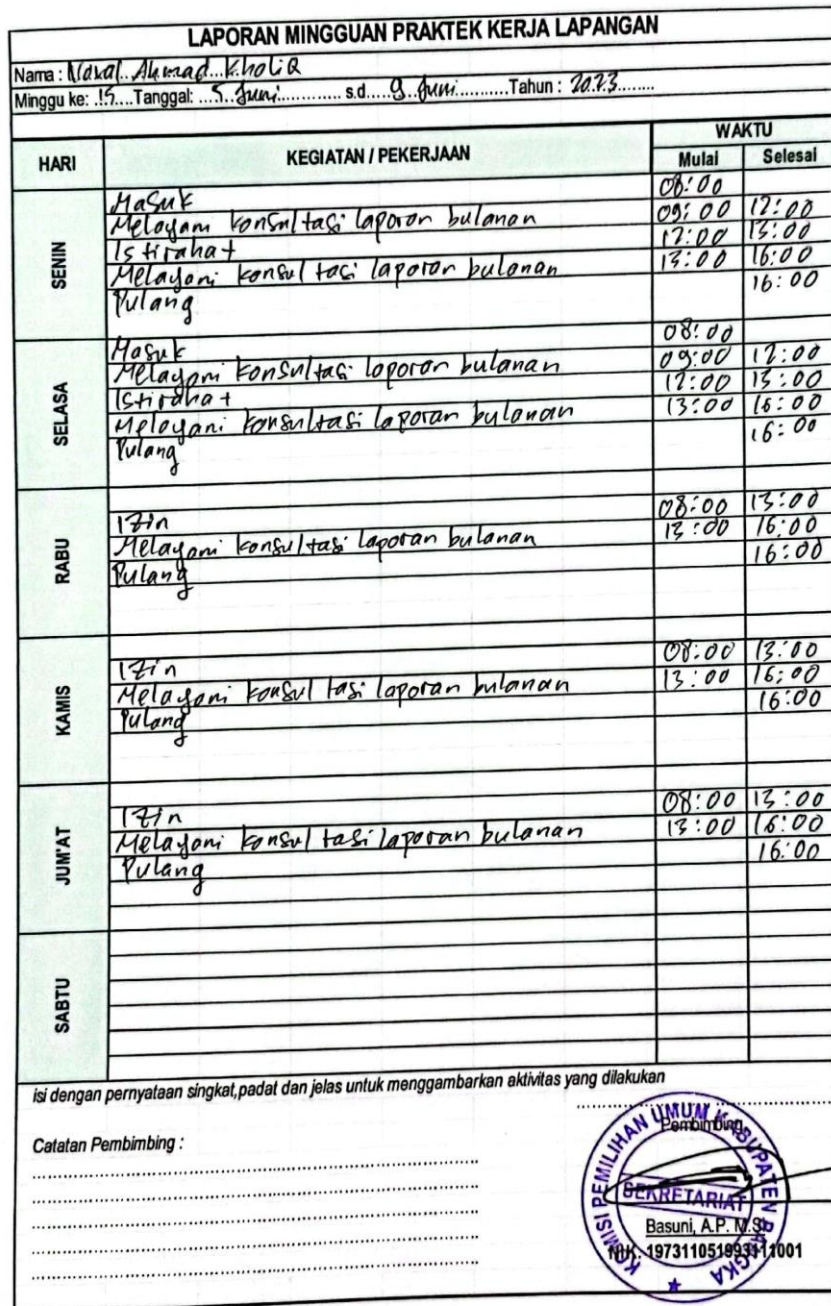 LAPORAN MINGGUAN PRAKTEK KERJA LAPANGAN
Nama : Ahmad Kholiq
Minggu ke: 15 Tanggal: 5 Juni s.d 9 Juni Tahun : 2023
HARI KEGIATAN / PEKERJAAN WAKTU
Mulai Selesai
SENIN
Masuk 08:00
Melayani konsultasi laporan bulanan 09:00 12:00
Istirahat 12:00 13:00
Melayani konsultasi laporan bulanan 13:00 16:00
Pulang 16:00
SELASA
Masuk 08:00
Melayani konsultasi laporan bulanan 09:00 12:00
Istirahat 12:00 13:00
Melayani konsultasi laporan bulanan 13:00 16:00
Pulang 16:00
RABU
Izin 08:00 13:00
Melayani konsultasi laporan bulanan 13:00 16:00
Pulang 16:00
KAMIS
Izin 08:00 13:00
Melayani konsultasi laporan bulanan 13:00 16:00
Pulang 16:00
JUM'AT
Izin 08:00 13:00
Melayani konsultasi laporan bulanan 13:00 16:00
Pulang 16:00
SABTU
isi dengan pernyataan singkat,padat dan jelas untuk menggambarkan aktivitas yang dilakukan
Catatan Pembimbing :
Pembimbing,
KOMISI PEMILIHAN UMUM KABUPATEN BANGKA
SEKRETARIAT
Basuni, A.P. M.Si
NIK. 197311051993111001